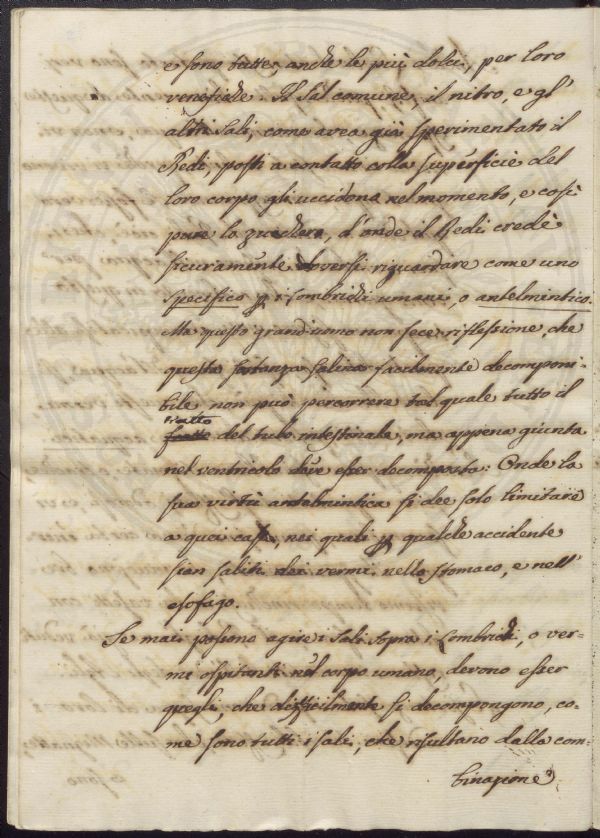 e sono tutte, anche le più dolci, per loro
venefiche. Il Sal comune, il nitro, e gl'
altri Sali, come avea già sperimentato il
Redi, posti a contatto colla superficie del
loro corpo gli uccidono nel momento, e così
pure lo zucchero, d'onde il Redi credè
sicuramente doversi riguardare come uno
specifico p i lombrichi umani, o antelmintico.
Ma questo grand'uomo non fece riflessione, che
questa sostanza salina facilmente decomponi-
bile non può percorrere tal quale tutto il
tratto
del tubo intestinale, ma appena giunta
nel ventricolo deve esser decomposta: Onde la
sua virtù antelmintica si dee solo limitare
a quei casi, nei quali p qualche accidente
sian saliti dei vermi nello stomaco, e nell'
esofago.
Se mai possono agire i Sali sopra i lombrichi, o ver=
mi ospitanti nel corpo umano, devono esser
quegli, che difficilmente si decompongono, co-
me sono tutti i sali, che risultano dalla com-
binazione